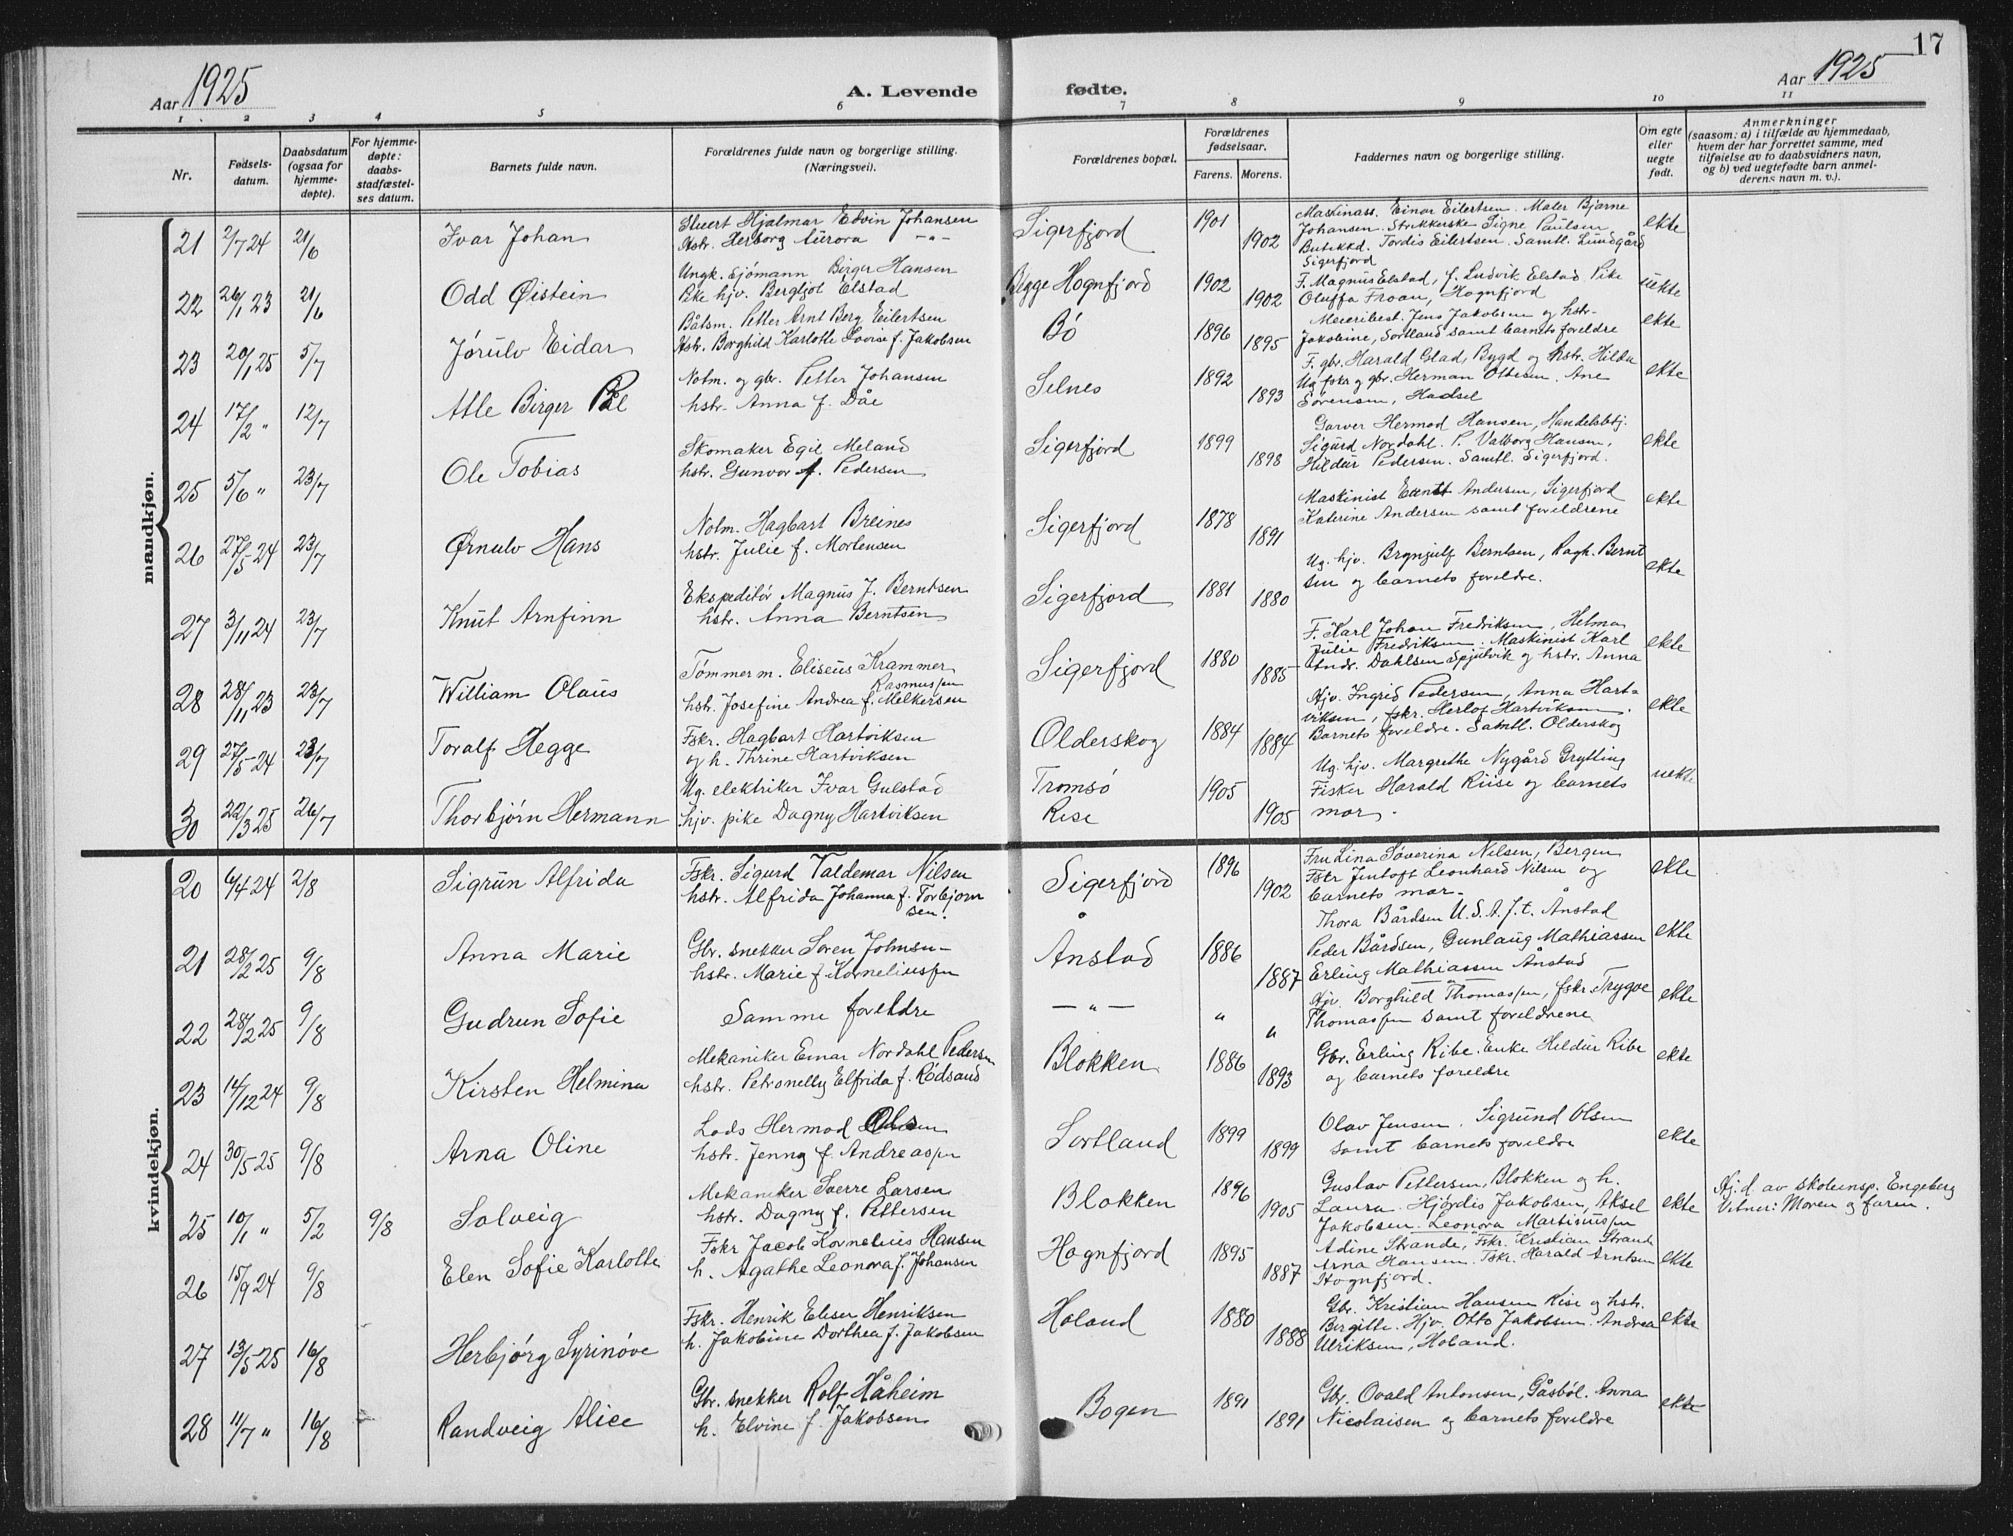 17
Aar 1925
A. Levende fødte.
Aar 1925
1 2 3 4 5 6 7 8 9 10 11
Nr.
Fødsels-
datum.
Daabsdatum
(ogsaa for
hjemme-
døpte).
For hjemme-
døpte:
daabs-
stadfæstel-
ses datum.
Barnets fulde navn.
Forældrenes fulde navn og borgerlige stilling.
(Næringsvei).
Forældrenes bopæl.
Forældrenes
fødselsaar.
Farens. Morens.
Faddernes navn og borgerlige stilling.
Om egte
eller
uegte
født.
Anmerkninger
(saasom: a) i tilfælde av hjemmedaab,
hvem der har forrettet samme, med
tilføielse av to daabsvidners navn,
og b) ved uegtefødte barn anmel-
derens navn m. v.).
mandkjøn.
21 2/7 24 21/6 Ivar Johan
Stuert Hjalmar Edvin Johansen
Hstr. Herborg Aurora —"—
Sigerfjord 1901 1902
Maskinass. Einar Eilertsen. Maler Bjarne
Johansen. Strikkerske Signe Paulsen
Butikkd. Tordis Eilertsen. Samtl. Lundgård
Sigerfjord
ekte
22 26/1 23 21/6 Odd Øistein
Ungk. Sjømann Birger Hansen
Pike hjv. Bergljot Elstad
Bygge Hognfjord 1902 1902
F. Magnus Elstad, f. Ludvik Elstad Pike
Oluffa Froan, Hognfjord
uekte
23 20/1 25 5/7 Jørulv Eidar
Båtsm. Petter Arnt Berg Eilertsen
Hstr. Borghild Karlotte Lovise f. Jakobsen
Bø 1896 1895
Meieribest. Jens Jakobsen og hstr.
Jakobine, Sortland samt barnets foreldre
ekte
24 17/2 " 12/7 Atle Birger Pål
Notm. og gbr. Petter Johansen
hstr. Anna f. Dåe
Selnes 1892 1893
F. gbr. Harald Glad, Bygd og hstr. Hilda
Ug fskr og gbr. Herman Ottesen. Ane
Sørensen, Hadsel
ekte
25 5/6 " 23/7 Ole Tobias
Skomaker Egil Meland
hstr. Gunvor f. Pedersen
Sigerfjord 1899 1898
Garver Hermod Hansen, Handelsbtj.
Sigurd Nordahl. P. Valborg Hansen,
Hildur Pedersen. Samtl. Sigerfjord.
ekte
26 27/5 24 23/7 Ørnulv Hans
Notm. Hagbart Breines
hstr. Julie f. Mortensen
Sigerfjord 1878 1891
Maskinist Andersen, Sigerfjord
Katerine Andersen samt foreldrene
ekte
27 3/11 24 23/7 Knut Arnfinn
Ekspeditør Magnus J. Berntsen
hstr. Anna Berntsen
Sigerfjord 1881 1880
Ug. hjv. Brynjulf Berntsen, Ragh. Bernt
sen og barnets foreldre.
ekte
28 28/11 23 23/7 William Olaus
Tømmerm. Eliseus Krammer
Rasmussen
hstr. Josefine Andrea f. Melkersen
Sigerfjord 1880 1885
F. Karl Johan Fredriksen, Helma
Julie Fredriksen. Maskinist Karl
Andr. Dahlsen Spjutvik og hstr. Anna
ekte
29 27/5 24 23/7 Toralf Hegge
Fskr. Hagbart Hartviksen
og h. Thrine Hartviksen
Olderskog 1884 1884
Hjv. Ingrid Pedersen, Anna Hart-
viksen, fskr. Herlof Hartviksen.
Barnets foreldre. Samtl. Olderskog
ekte
30 22/3 25 26/7 Thorbjørn Hermann
Ug. elektriker Ivar Gulstad
hjv. pike Dagny Hartviksen
Tromsø
Rise
1905 1905
Ug. hjv. Margrethe Nygård Grytting
Fisker Harald Riise og barnets
mor.
uekte
kvindekjøn.
20 6/4 24 2/8 Sigrun Alfrida
Fskr. Sigurd Valdemar Nilsen
hstr. Alfrida Johanna f. Torbjørn
sen.
Sigerfjord 1896 1902
Fru Lina Søverina Nilsen, Bergen
Fskr Jentoft Leonhard Nilsen og
barnets mor.
ekte
21 28/2 25 9/8 Anna Marie
Gbr. snekker Søren Johnsen
hstr. Marie f. Korneliussen
Ånstad 1886 1887
Thora Bårdsen U.S.A. f. t. Ånstad
Peder Bårdsen, Gunlaug Mathiassen
Erling Mathiassen Ånstad
ekte
22 28/2 25 9/8 Gudrun Sofie
Samme foreldre
—"— " "
Hjv. Borghild Thomassen, fskr. Trygve
Thomassen samt foreldrene
ekte
23 14/12 24 9/8 Kirsten Helmina
Mekaniker Einar Nordahl Pedersen
hstr. Petronelly Elfrida f. Rødsand
Blokken 1886 1893
Gbr. Erling Ribe. Enke Hildur Ribe
og barnets foreldre
ekte
24 30/5 25 9/8 Arna Oline
Lods Hermod Olsen
hstr. Jenny f. Andreassen
Sortland 1899 1899
Olav Jensen. Sigrund Olsen
samt barnets foreldre
ekte
25 10/1 " 5/2 9/8 Solveig
Mekaniker Sverre Larsen
hstr. Dagny f. Pettersen
Blokken 1896 1905
Gustav Pettersen, Blokken og h.
Laura. Hjørdis Jakobsen, Aksel
Jakobsen. Leonora Martinussen
ekte
Hj. d. av skoleinsp. Engeberg
Vitner: Moren og faren.
26 15/9 24 9/8 Elen Sofie Karlotte
Fskr Jacob Kornelius Hansen
h. Agathe Leonora f. Johansen
Hognfjord 1895 1887
Adine Strande, Fskr. Kristian Strand
Arna Hansen. Fskr. Harald Arntsen
Hognfjord.
ekte
27 13/5 25 16/8 Herbjørg Syrinøve
Fskr. Henrik Eliser Henriksen
h. Jakobine Dorthea f. Jakobsen
Holand 1880 1888
Gbr. Kristian Hansen Rise og hstr.
Bergitte. Hjv. Otto Jakobsen. Andrea
Ulriksen, Holand.
ekte
28 11/7 " 16/8 Randveig Alice
Gbr. snekker Rolf Håheim
h. Elvine f. Jakobsen
Bogen 1891 1891
Gbr. Ovald Antonsen, Gåsbøl. Anna
Nicolaisen og barnets foreldre
ekte